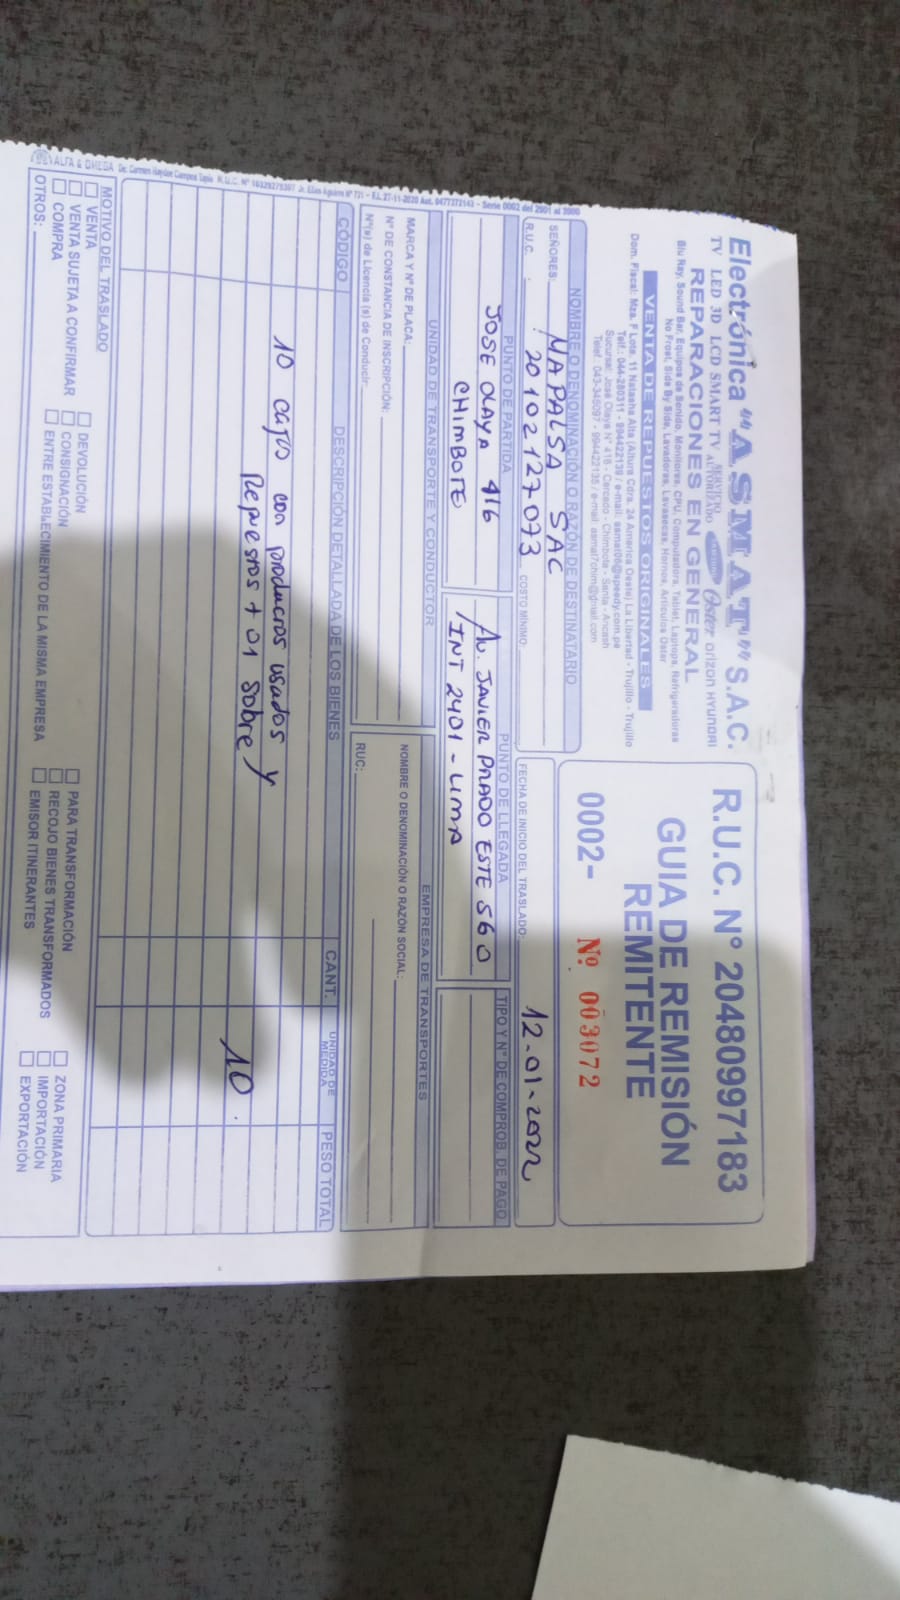 Electrónica "ASMAT" S.A.C.
TV LED 3D LCD SMART TV SERVICIO AUTORIZADO SAMSUNG Oster orizon HYUNDAI
REPARACIONES EN GENERAL
Blu Ray, Sound Bar, Equipos de Sonido, Monitores, CPU, Computadora, Tablet, Laptops, Refrigeradoras
No Frost, Side By Side, Lavadoras, Lavasecas, Hornos, Artículos Oster
VENTA DE REPUESTOS ORIGINALES
Dom. Fiscal: Mza. F Lote. 11 Natasha Alta (Altura Cdra. 24 America Oeste) La Libertad - Trujillo - Trujillo
Telf.: 044-280311 - 994422139 / e-mail: asmat06@speedy.com.pe
Sucursal: José Olaya N° 418 - Cercado - Chimbote - Santa - Ancash
Telef.: 043-345097 - 994422135 / e-mail: asmat7chim@gmail.com
R.U.C. N° 20480997183
GUIA DE REMISIÓN
REMITENTE
0002- Nº 003072
NOMBRE O DENOMINACIÓN O RAZÓN DE DESTINATARIO
SEÑORES: MAPALSA SAC
R.U.C. : 20102127073 COSTO MÍNIMO:
FECHA DE INICIO DEL TRASLADO: 12-01-2022
PUNTO DE PARTIDA
JOSE OLAYA 416
CHIMBOTE
PUNTO DE LLEGADA
AV. JAVIER PRADO ESTE 560
/INT 2401 - LIMA
TIPO Y N° DE COMPROB. DE PAGO
UNIDAD DE TRANSPORTE Y CONDUCTOR
MARCA Y N° DE PLACA:
N° DE CONSTANCIA DE INSCRIPCIÓN:
N°(s) de Licencia (s) de Conducir:
EMPRESA DE TRANSPORTES
NOMBRE O DENOMINACIÓN O RAZÓN SOCIAL:
RUC:
CÓDIGO DESCRIPCIÓN DETALLADA DE LOS BIENES CANT. UNIDAD DE MEDIDA PESO TOTAL
10 cajas con productos usados y
Repuestos + 01 sobre 10.
MOTIVO DEL TRASLADO
VENTA
VENTA SUJETA A CONFIRMAR
COMPRA
OTROS:
DEVOLUCIÓN
CONSIGNACIÓN
ENTRE ESTABLECIMIENTO DE LA MISMA EMPRESA
PARA TRANSFORMACIÓN
RECOJO BIENES TRANSFORMADOS
EMISOR ITINERANTES
ZONA PRIMARIA
IMPORTACIÓN
EXPORTACIÓN
ALFA & OMEGA De: Carmen Haydee Campos Tapia R.U.C. N° 10329275397 Jr. Elías Aguirre N° 731 - F.I. 27-11-2020 Aut. 0477372143 - Serie 0002 del 2001 al 3000